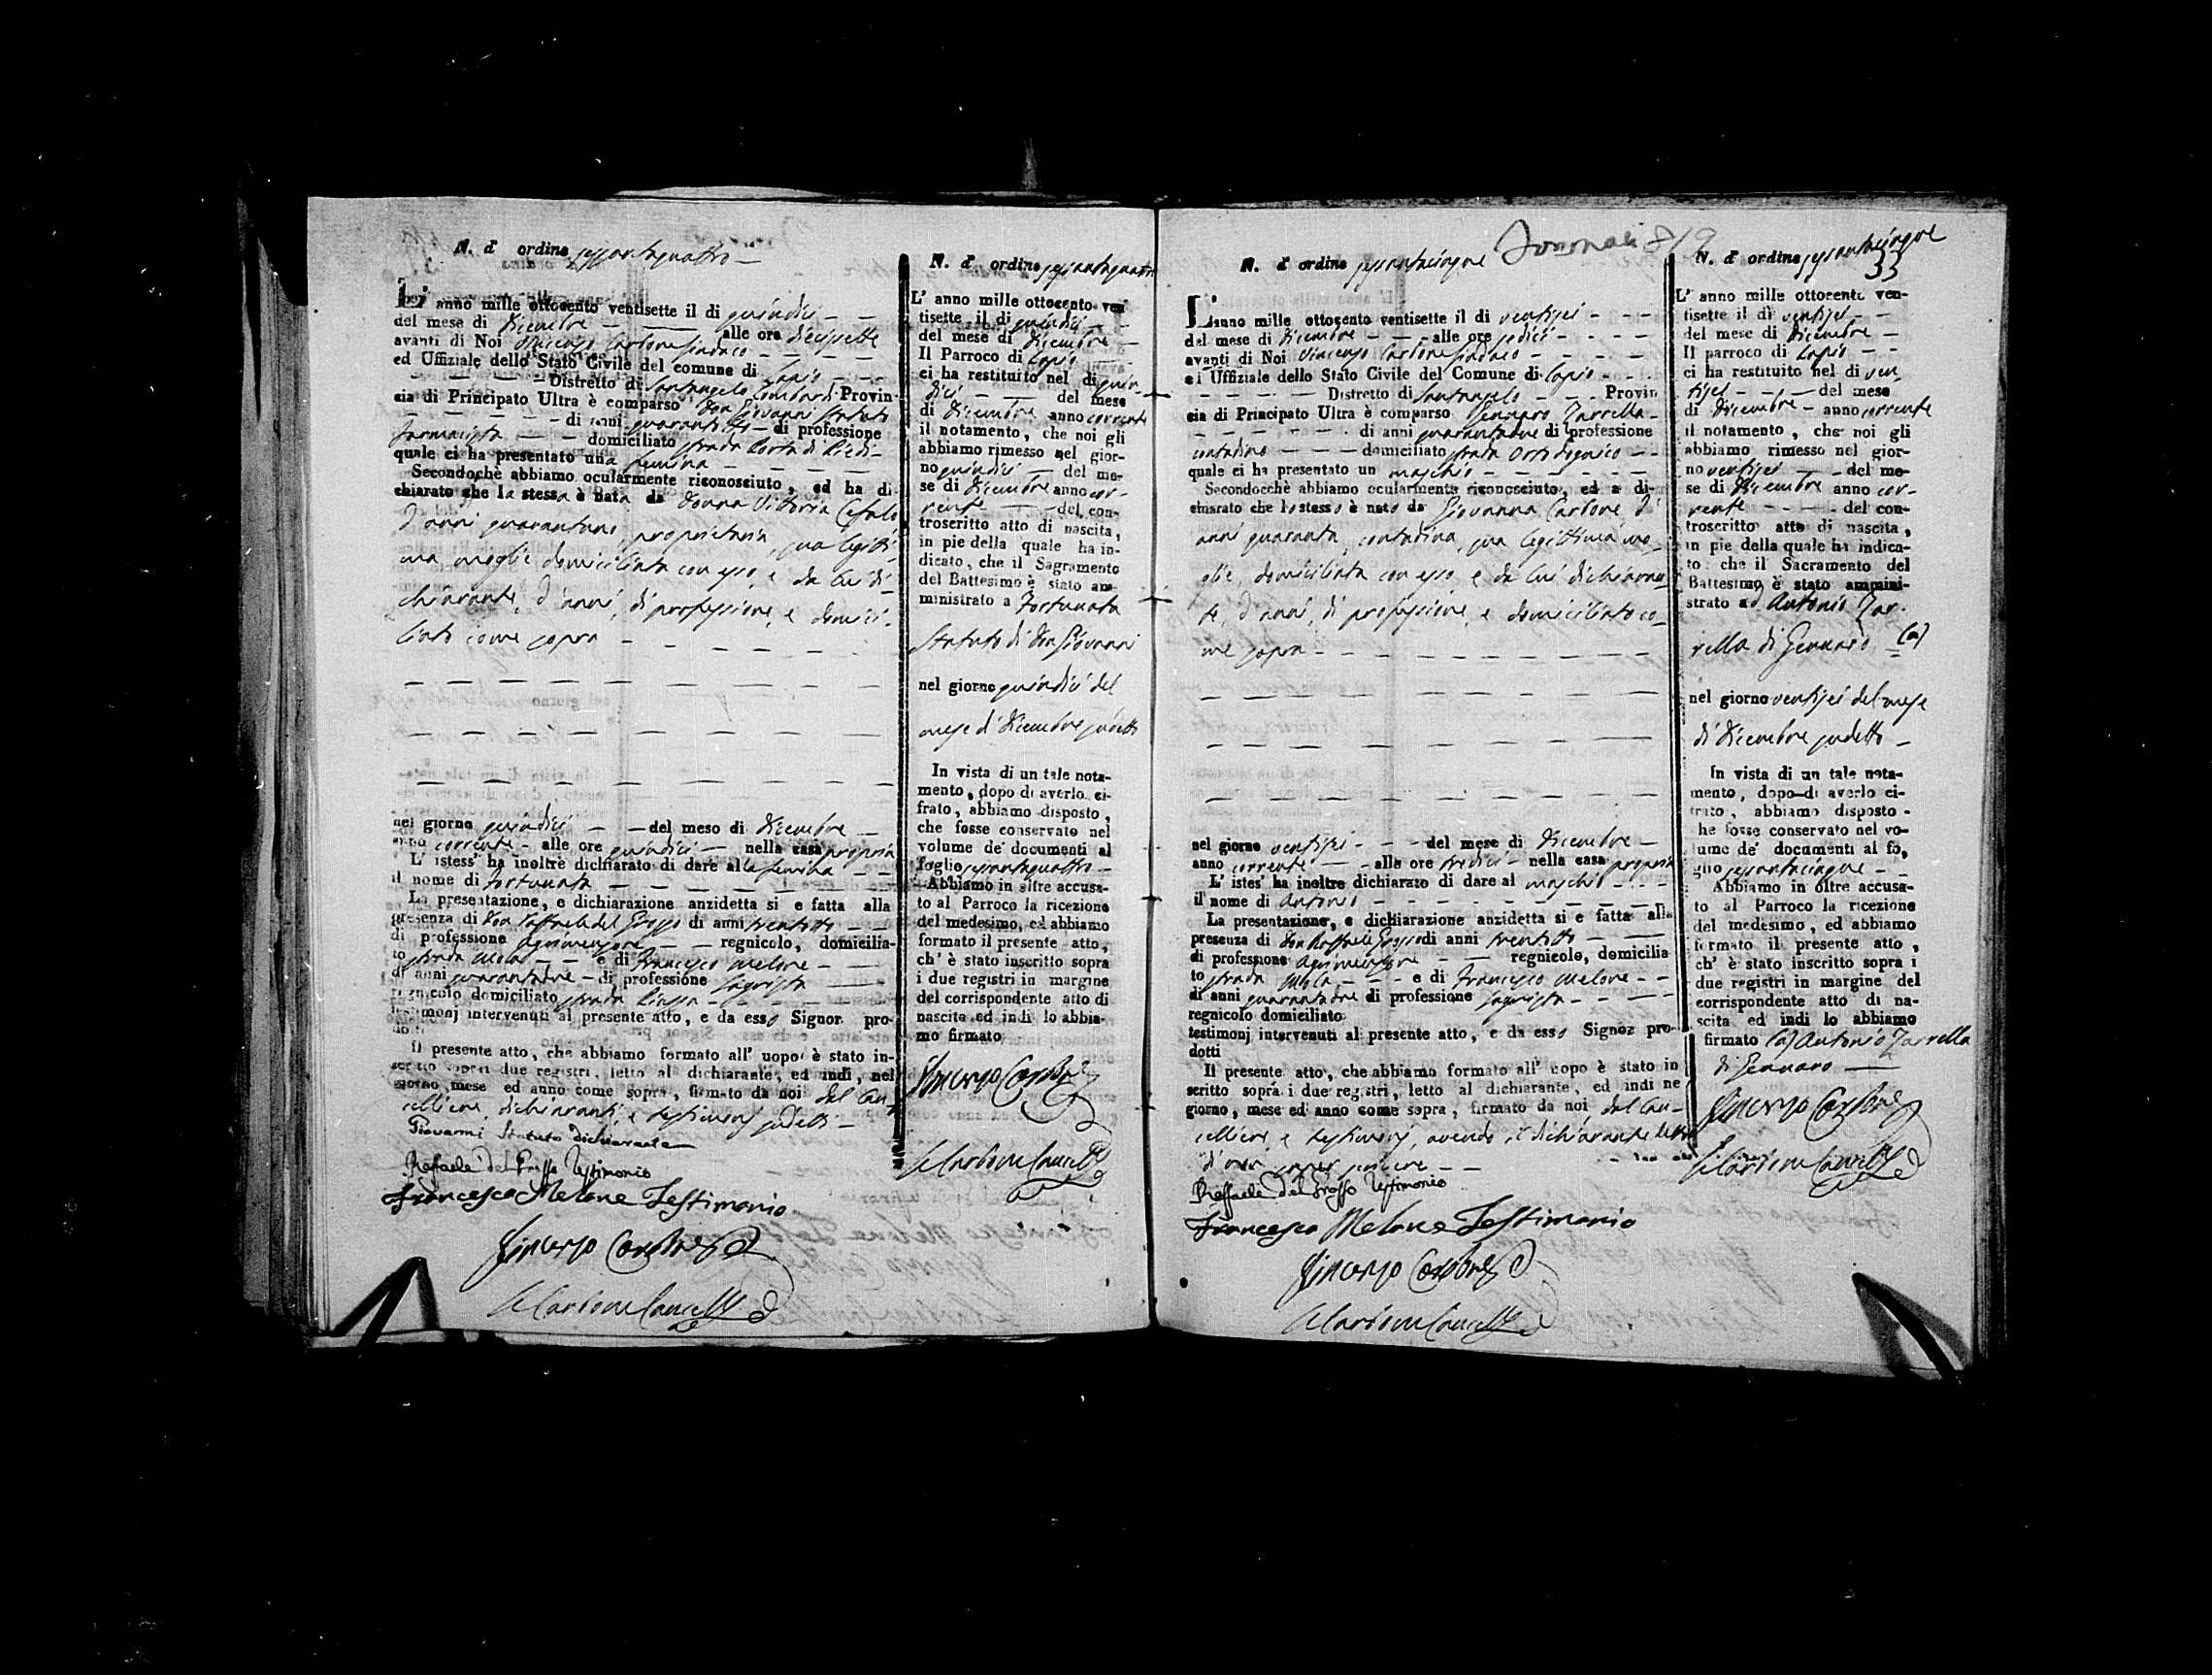 N. d' ordine sessantaquattro
L' anno mille ottocento ventisette il di quindici
del mese di Dicembre alle ore diecisette
avanti di Noi Vincenzo Carbone Sindaco
ed Uffiziale dello Stato Civile del comune di Lapio
Distretto di Santangelo Lombardi Provin
cia di Principato Ultra è comparso don Giovanni Statuto
di anni quarantotto di professione
farmacista domiciliato strada Porta di Piedi
quale ci ha presentato una femina
Secondochè abbiamo ocularmente riconosciuto, ed ha di
chiarato che la stessa è nata da Donna Vittoria Cefalo
d'anni quarantuno, proprietaria, sua legitti-
ma moglie domiciliata con esso, e da lui di-
chiarante, d'anni, di professione, e domici-
liato come sopra
nel giorno quindici del meso di Dicembre
anno corrente alle ore quindici nella casa propria
L' istess' ha inoltre dichiarato di dare alla femina
il nome di Fortunata
La presentazione, e dichiarazione anzidetta si e fatta alla
presenza di Don Raffaele del Grosso di anni trentotto
di professione agrimensore regnicolo, domicilia-
to strada Mola e di Francesco Melone
di anni quarantadue di professione sagrista
regnicolo domiciliato strada Piazza
testimonj intervenuti al presente atto, e da esso Signor pro-
dotti
Il presente atto, che abbiamo formato all' uopo è stato in-
scritto sopra i due registri, letto al dichiarante, ed indi, nel
giorno, mese ed anno come sopra, firmato da noi dal Can-
celliere, dichiarante, e testimonj sudetti
Giovanni Statuto dichiarante
Raffaele del Grosso Testimonio
Francesco Melone Testimonio
Vincenzo Carbone
Carbone Cancelle
N. d' ordine sessantaquattro
L' anno mille ottocento ven
tisette il di quindici
del mese di Dicembre
Il Parroco di Lapio
ci ha restituito nel di quin-
dici del mese
di Dicembre anno corrente
il notamento, che noi gli
abbiamo rimesso nel gior-
no quindici del me-
se di Dicembre anno cor-
rente del con-
troscritto atto di nascita,
in pie della quale ha in-
dicato, che il Sagramento
del Battesimo è stato am-
ministrato a Fortunata
Statuto di Don Giovanni
nel giorno quindici del
mese di Dicembre sudetto
In vista di un tale nota-
mento, dopo di averlo ci-
frato, abbiamo disposto,
che fosse conservato nel
volume de' documenti al
foglio sessantaquattro
Abbiamo in oltre accusa-
to al Parroco la ricezione
del medesimo, ed abbiamo
formato il presente atto,
ch' è stato inscritto sopra
i due registri in margine
del corrispondente atto di
nascita ed indi lo abbia-
mo firmato
Vincenzo Carbone
Carbone Cancelle
N. d' ordine sessantacinque
L' anno mille ottocento ventisette il di ventisei
del mese di Dicembre alle ore sedici
avanti di Noi Vincenzo Carbone Sindaco
ed Uffiziale dello Stato Civile del Comune di Lapio
Distretto di Santangelo Provin
cia di Principato Ultra è comparso Gennaro Zarrella
di anni quarantadue di professione
contadino domiciliato strada
quale ci ha presentato un maschio
Secondocchè abbiamo ocularmente riconosciuto, ed a di-
chiarato che lo stesso è nato da Giovanna Carbone d'
anni quaranta, contadina, sua legittima mo-
glie, domiciliata con esso, e da lui dichiaran-
te, d'anni, di professione, e domiciliato co-
me sopra
nel giorno ventisei del mese di Dicembre
anno corrente alle ore tredici nella casa propria
L' istes' ha inoltre dichiarato di dare al maschio
il nome di Antonio
La presentazione, e dichiarazione anzidetta si e fatta alla
presenza di Don Raffaele Grosso di anni trentotto
di professione Agrimensore regnicolo, domicilia
to strada Mola e di Francesco Melone
di anni quarantadue di professione sagrista
regnicolo domiciliato
testimonj intervenuti al presente atto, e da esso Signor pro-
dotti
Il presente atto, che abbiamo formato all' uopo è stato in
scritto sopra i due registri, letto al dichiarante, ed indi ne
giorno, mese ed anno come sopra, firmato da noi, dal Can-
celliere e testimonj, avendo il dichiarante detto
Raffaele del Grosso Testimonio
Francesco Melone Testimonio
Vincenzo Carbone
Carbone Cancelle
N. d' ordine sessantacinque
33
L' anno mille ottocento ven-
tisette il di ventisei
del mese di Dicembre
Il parroco di Lapio
ci ha restituito nel di ven-
tisei del mese
di Dicembre anno corrente
il notamento, che noi gli
abbiamo rimesso nel gior-
no ventisei del me-
se di Dicembre anno cor-
rente del con-
troscritto atto di nascita,
in pie della quale ha indica-
to che il Sacramento del
Battesimo è stato ammini-
strato ad Antonio Zar-
rella di Gennaro (a)
nel giorno ventisei del mese
di Dicembre sudetto
In vista di un tale nota-
mento, dopo di averlo ci-
frato, abbiamo disposto
che fosse conservato nel vo-
lume de' documenti al fo,
glio sessantacinque
Abbiamo in oltre accusa-
to al Parroco la ricezione
del medesimo, ed abbiamo
formato il presente atto,
ch' è stato inscritto sopra i
due registri in margine del
corrispondente atto di na-
scita ed indi lo abbiamo
firmato (a) Antonio Zarrella
di Gennaro
Vincenzo Carbone
Carbone Cancelle